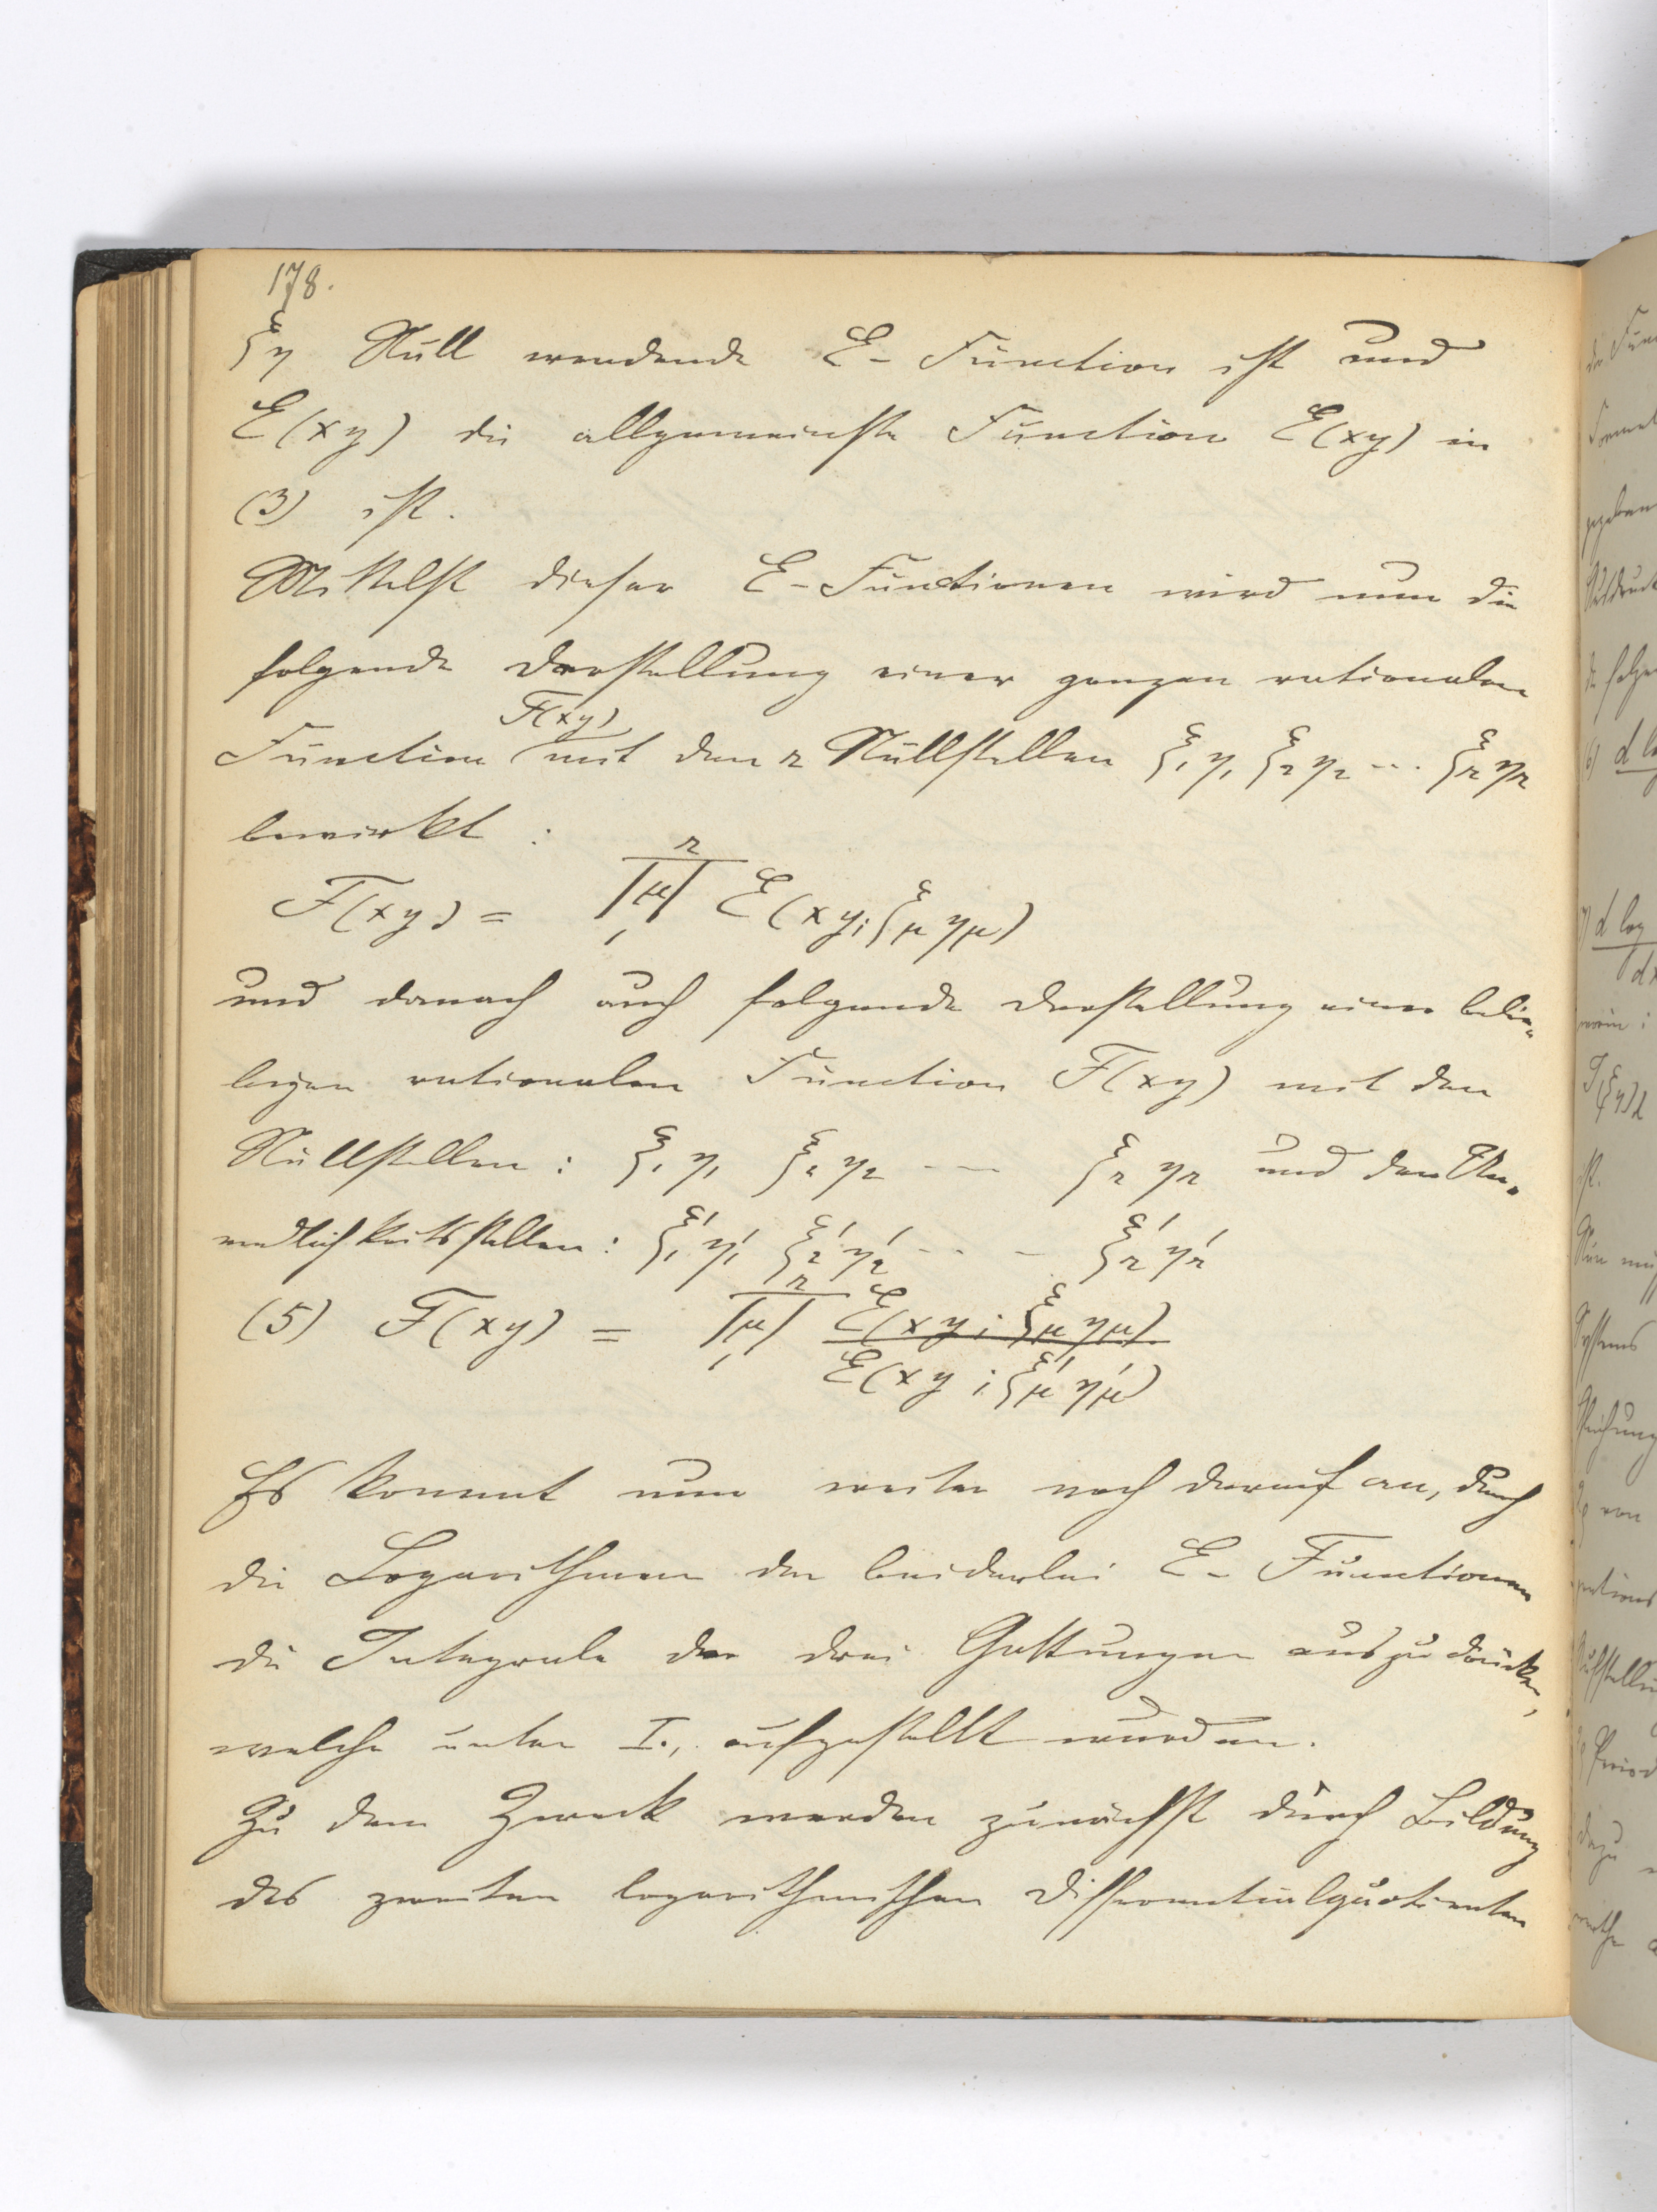 178.
ξη Null werdende E-Function ist und
E(xy) die allgemeinste Function E(xy) in
(3) ist.
Mittelst dieser E-Functionen wird nun die
folgende Darstellung einer ganzen rationalen
F(xy)
Function mit den r Nullstellen ξ₁η₁ ξ₂η₂ ... ξᵣηᵣ
bewirkt:
F(xy) = ∏μ₁ʳ E(xy; ξμ ημ)
und danach auch folgende Darstellung einer belie-
bigen rationalen Function F(xy) mit den
Nullstellen: ξ₁η₁ ξ₂η₂ --- ξᵣηᵣ und den Un-
endlichkeitsstellen: ξ₁'η₁' ξ₂'η₂' --- ξᵣ'ηᵣ'
(5) F(xy) = ∏μ₁ʳ E(xy; ξμ ημ)
E(xy; ξμ' ημ')
Es kommt nun weiter noch darauf an, durch
die Logarithmen der beiderlei E-Functionen
die Integrale der drei Gattungen auszudrücken,
welche unter I., aufgestellt wurden.
Zu dem Zweck werden zunächst durch Bildung
des zweiten logarithmischen Differentialquotienten